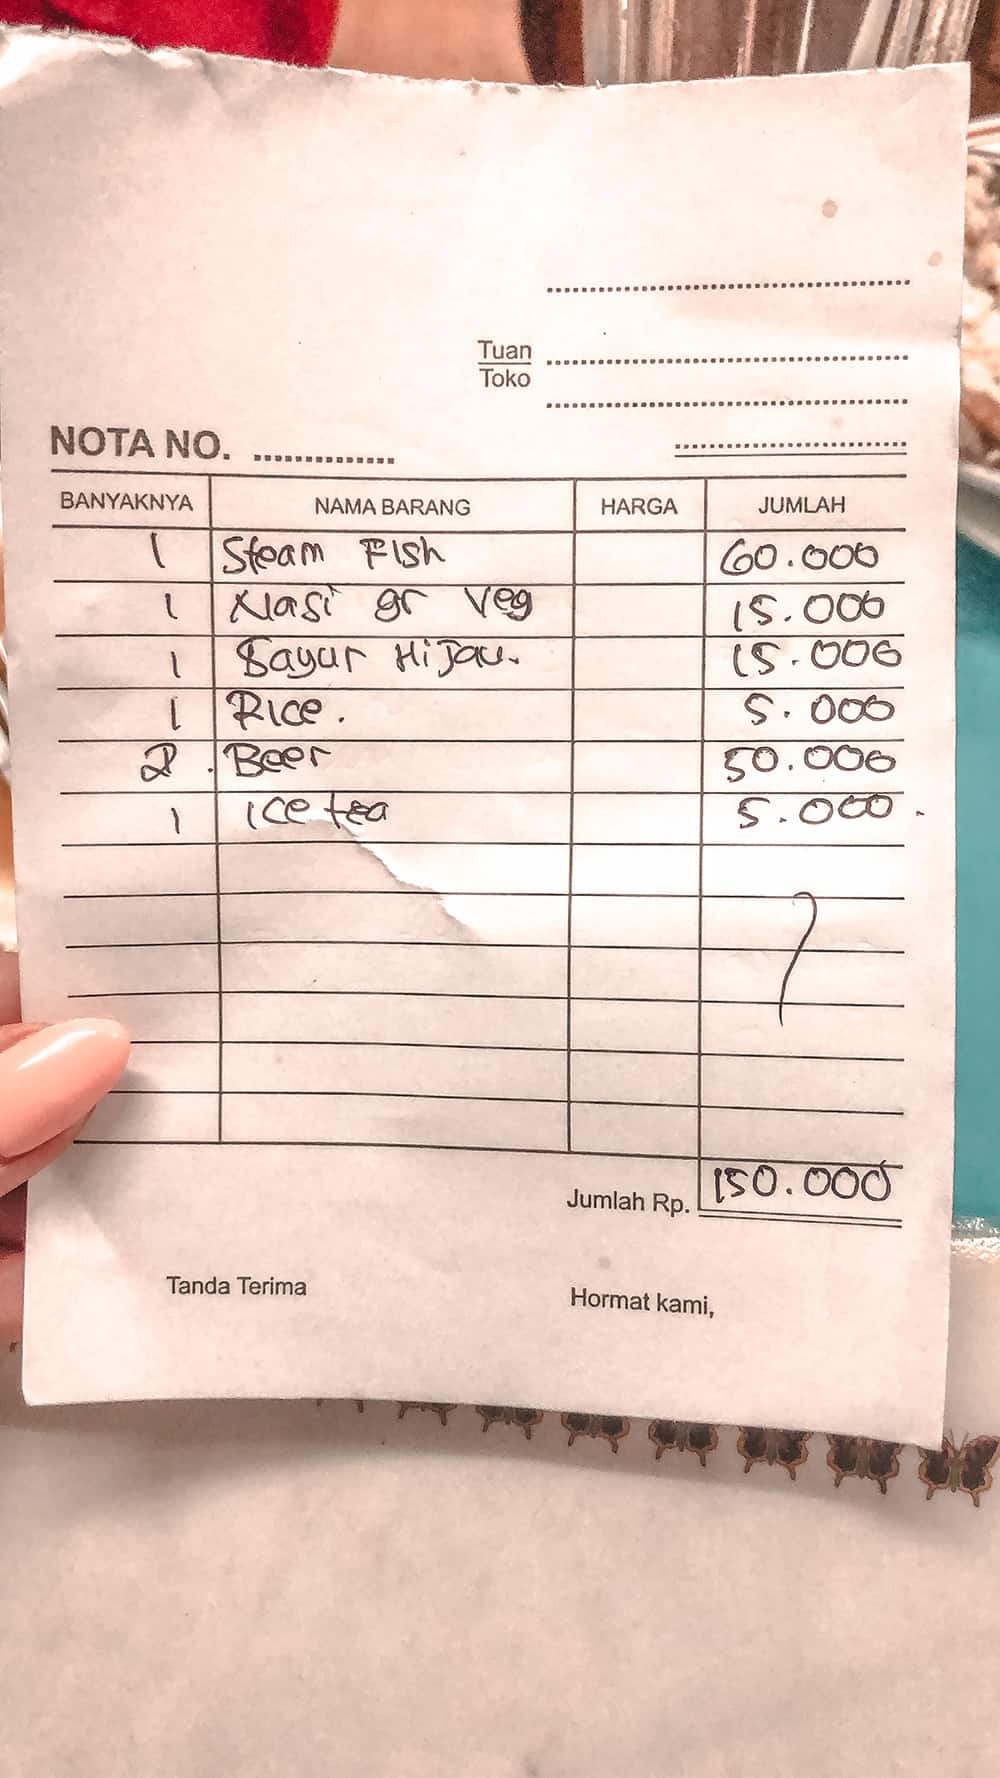 Tuan
Toko
NOTA NO.
BANYAKNYA NAMA BARANG HARGA JUMLAH
1 Steam Fish 60.000
1 Nasi gr Veg 15.000
1 Sayur Hijau. 15.000
1 Rice. 5.000
2 Beer 50.000
1 Ice tea 5.000
Jumlah Rp. 150.000
Tanda Terima Hormat kami,